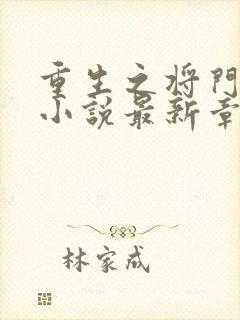 重生之将門
小説最新章
林家成